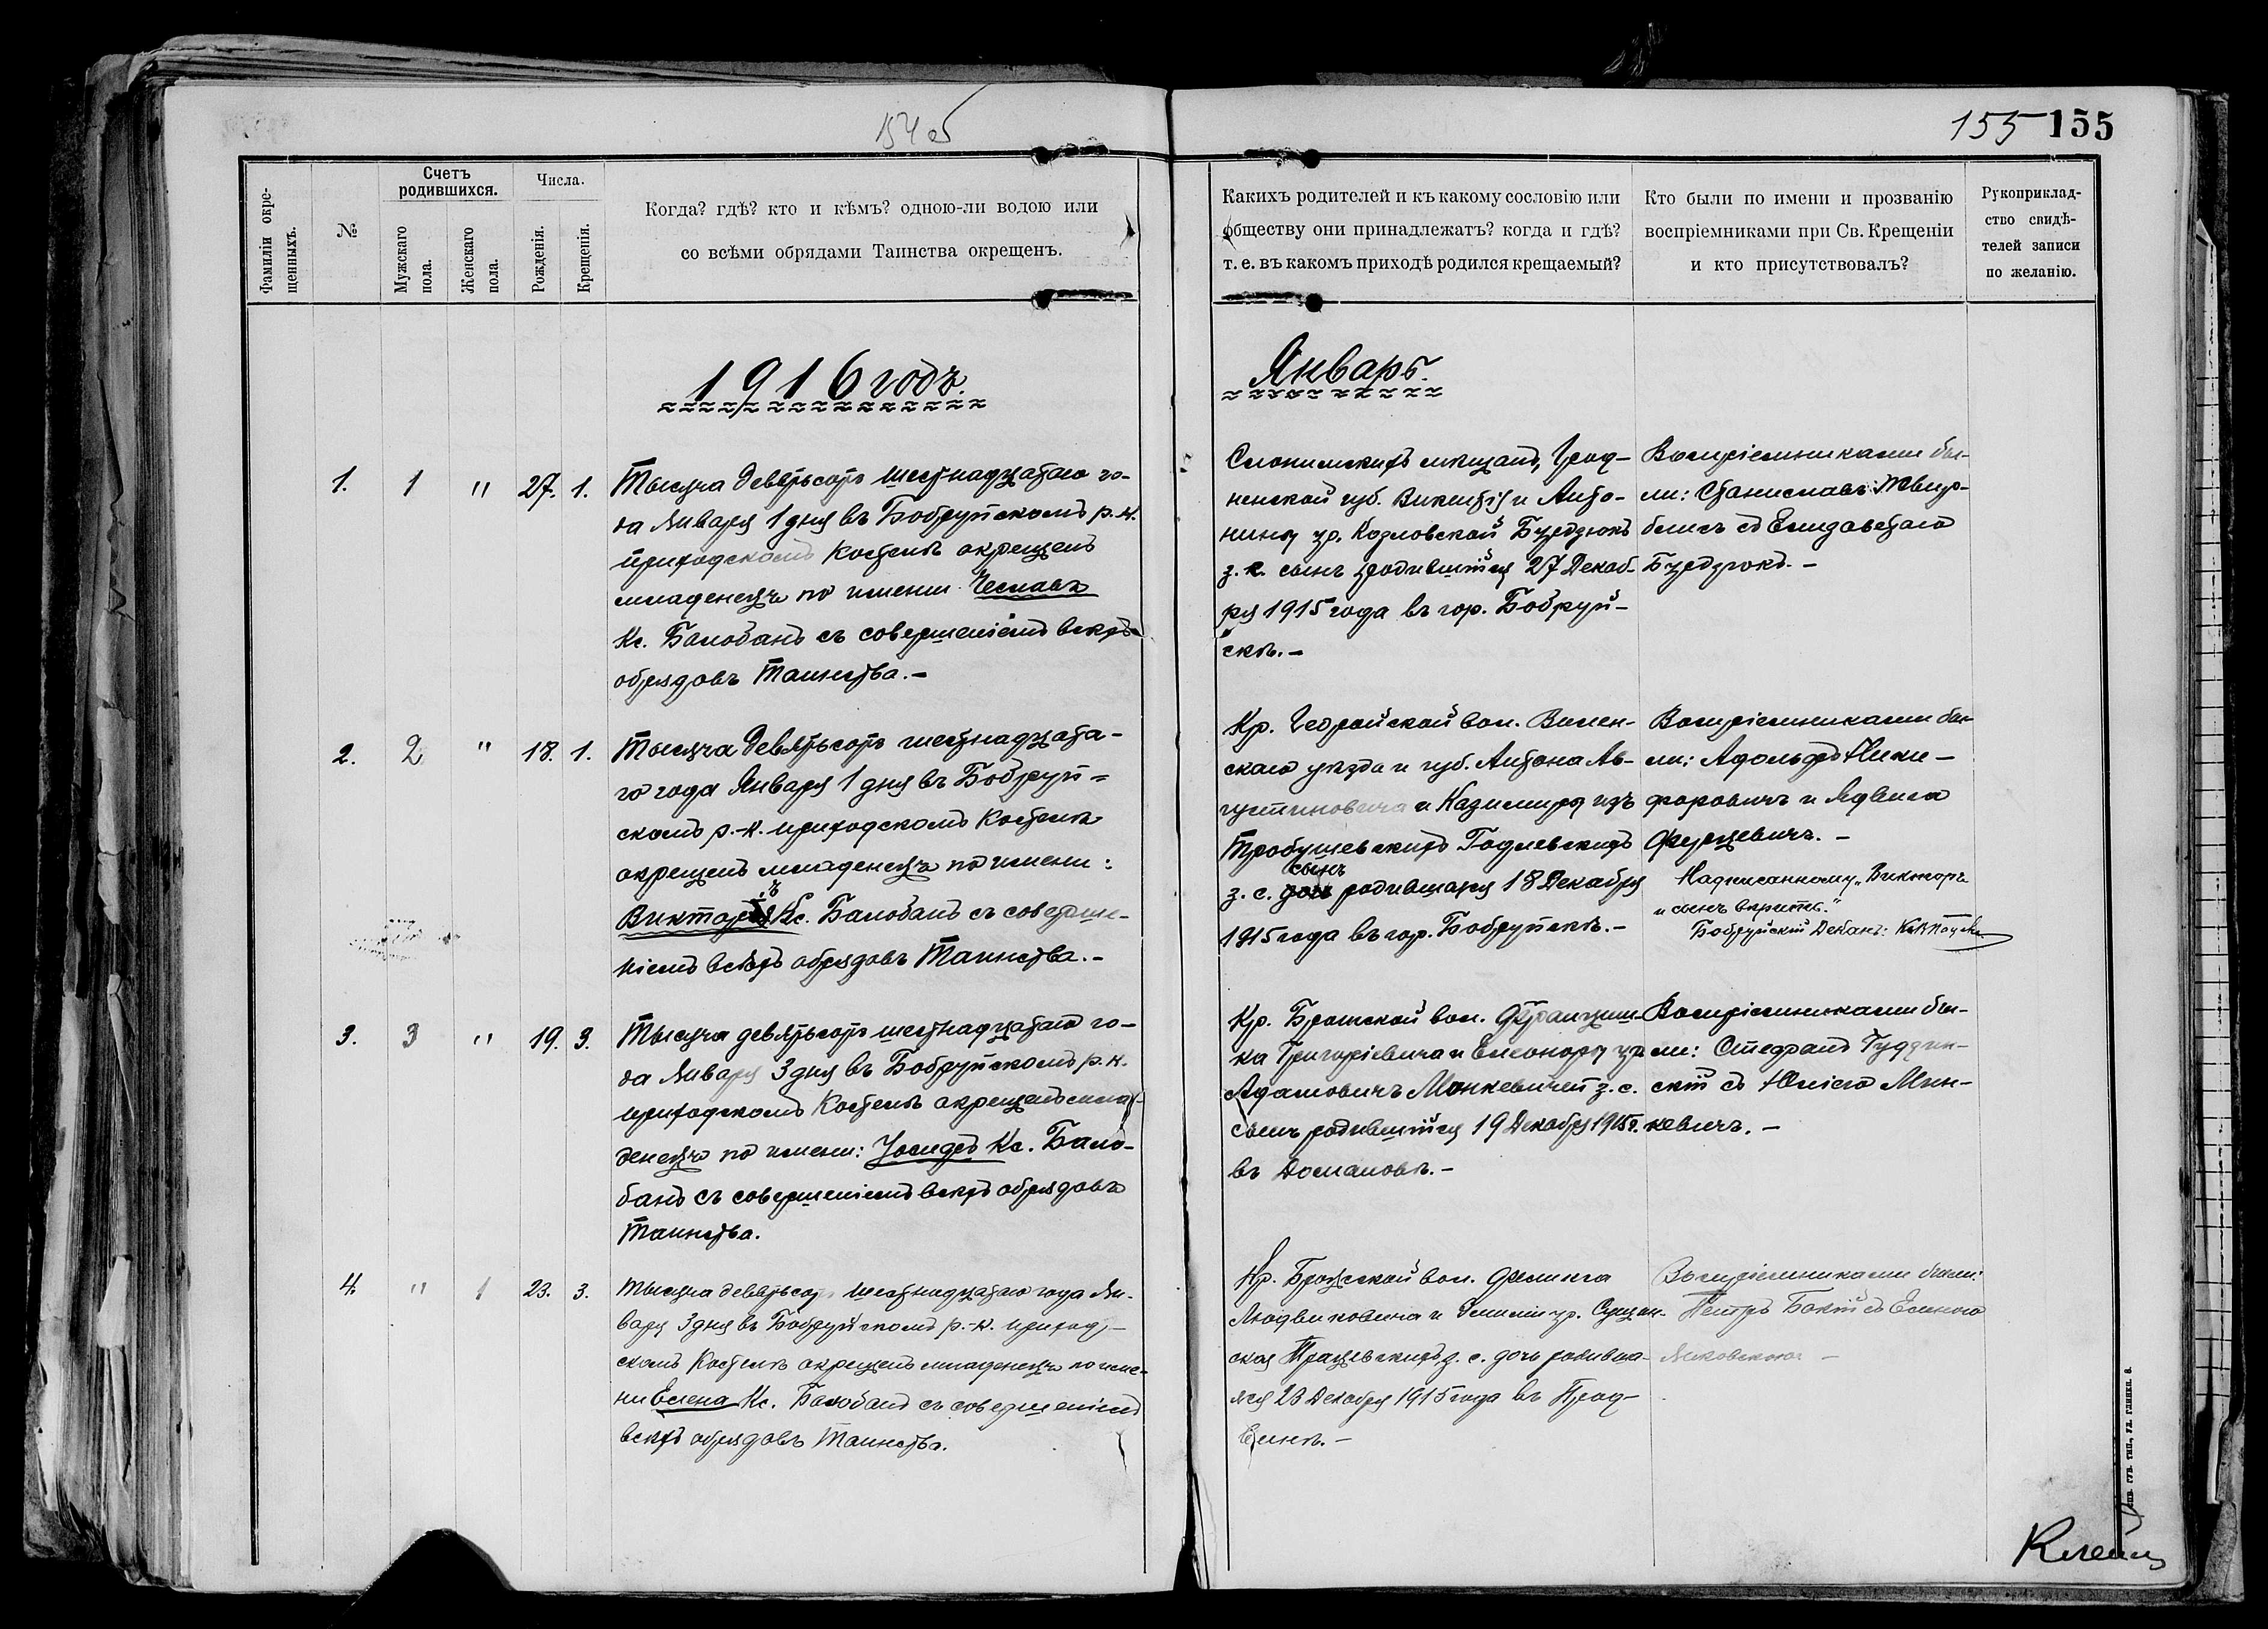 154об
155 155
Фамиліи окре-
щенныхъ.
№
Счетъ
родившихся.
Мужскаго
пола.
Женскаго
пола.
Числа.
Рожденія.
Крещенія.
Когда? гдѣ? кто и кѣмъ? одною-ли водою или
со всѣми обрядами Таинства окрещенъ.
Какихъ родителей и къ какому сословію или
обществу они принадлежатъ? когда и гдѣ?
т. е. въ какомъ приходѣ родился крещаемый?
Кто были по имени и прозванію
воспріемниками при Св. Крещеніи
и кто присутствовалъ?
Рукоприклад-
ство свидѣ-
телей записи
по желанію.
1916 годъ.
Январь.
1. 1 " 27. 1.
Тысяча девятьсотъ шестнадцатаго го-
да Января 1 дня въ Бобруйскомъ р.-к.
приходскомъ Костелѣ окрещенъ
младенецъ по имени Чеславъ
Кс. Балобанъ съ совершеніемъ всѣхъ
обрядовъ Таинства.-
Слонимскихъ мѣщанъ, Грод-
ненской губ. Викентія и Анто-
нины ур. Козловской Буздзюкъ
з. с. сынъ родившійся 27 Декаб-
ря 1915 года въ гор. Бобруй-
скѣ.-
Воспріемниками бы-
ли: Станиславъ
съ Елизаветою
Буздзюкъ.-
2. 2 " 18. 1.
Тысяча девятьсотъ шестнадцата-
го года Января 1 дня въ Бобруй-
скомъ р.-к. приходскомъ Костелѣ
окрещенъ младенецъ по имени:
Викторъ Кс. Балобанъ съ соверше-
ніемъ всѣхъ обрядовъ Таинства.-
Кр. вол. Вилен-
скаго уѣзда и губ. Антона Ав-
густиновича и Казимиры изъ
Годлевскихъ
сынъ
з. с. родившаяся 18 Декабря
1915 года въ гор. Бобруйскѣ.-
Воспріемниками бы-
ли: Адольфъ Ники-
форовичъ и Ядвига
Надписанному "Викторъ
и сынъ вѣрить."
Бобруйскій Деканъ:
3. 3 " 19. 3.
Тысяча девятьсотъ шестнадцатаго го-
да Января 3 дня въ Бобруйскомъ р.-к.
приходскомъ Костелѣ окрещенъ мла-
денецъ по имени: Іосифъ Кс. Бало-
банъ съ совершеніемъ всѣхъ обрядовъ
Таинства.
Кр. вол. Францишъ-
ка Григоріевича и Елеоноры ур.
Адамовичъ з. с.
сынъ родившійся 19 Декабря 1915 г.
въ Домановѣ.-
Воспріемниками бы-
ли: Стефанъ
съ Юліею Мин-
кевичъ.-
4. " 1 23. 3.
Тысяча девятьсотъ шестнадцатаго года Ян-
варя 3 дня въ Бобруйскомъ р.-к. приход-
скомъ Костелѣ окрещенъ младенецъ по име-
ни Елена Кс. Балобанъ съ совершеніемъ
всѣхъ обрядовъ Таинства.
Кр. вол. Феликса
Людвиковича и Эмиліи ур.
з. с. дочь родивша-
яся 23 Декабря 1915 года въ
Воспріемниками были:
Петръ съ Еленою